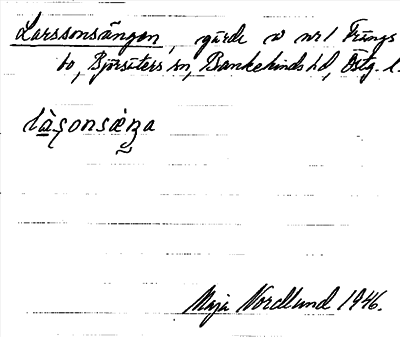 Larssonsängen, gärde v nr 1 Frängs
bo, Björsäters sn, Bankekinds hd, Östg. l.
la̱s̩onsæŋa
Maja Nordlund 1946.